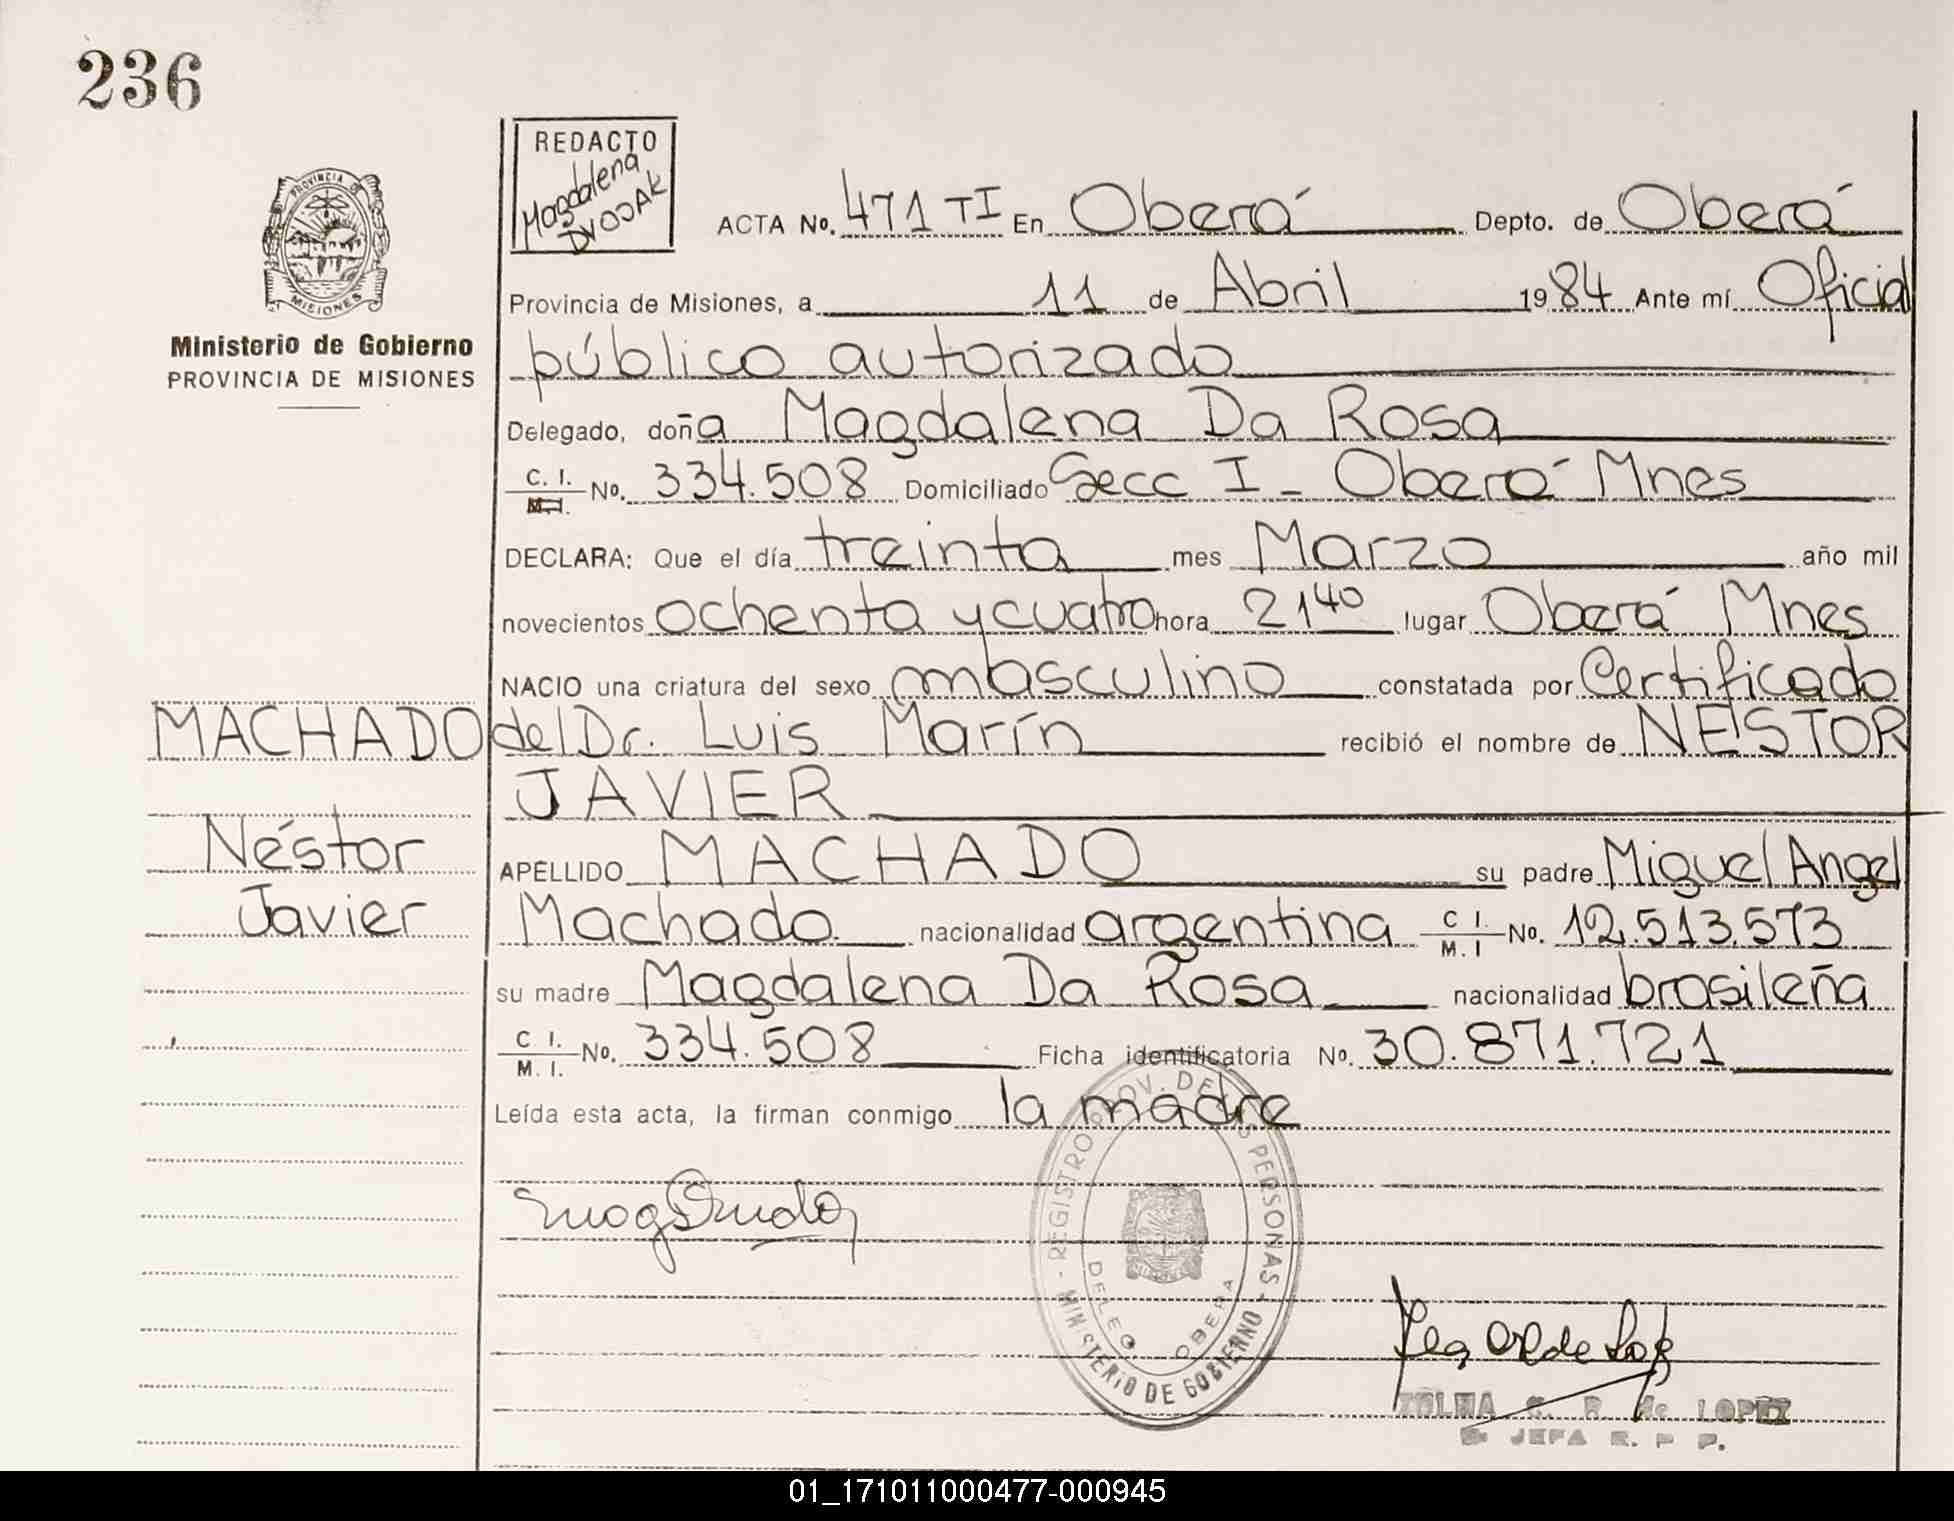 236
REDACTO
Magdalena
DVOJAK
PROVINCIA DE
MISIONES
Ministerio de Gobierno
PROVINCIA DE MISIONES
ACTA No. 471 TI En Oberá Depto. de Oberá
Provincia de Misiones, a 11 de Abril 1984 Ante mí Oficial
público autorizado
Delegado, doña Magdalena Da Rosa
C. I. / M. I. No. 334.508 Domiciliado Secc I - Oberá Mnes
DECLARA: Que el día treinta mes Marzo año mil
novecientos ochenta y cuatro hora 21 40 lugar Oberá Mnes
NACIO una criatura del sexo masculino constatada por Certificado
del Dr. Luis Marín recibió el nombre de NÉSTOR
JAVIER
APELLIDO MACHADO su padre Miguel Angel
Machado nacionalidad argentina C I. / M. I No. 12.513.573
su madre Magdalena Da Rosa nacionalidad brasileña
C I. / M. I. No. 334.508 Ficha identificatoria No. 30.871.721
Leída esta acta, la firman conmigo la madre
MACHADO
Néstor
Javier
REGISTRO PROV. DE LAS PERSONAS
MINISTERIO DE GOBIERNO
OBERA
LOPEZ
JEFA
01_171011000477-000945